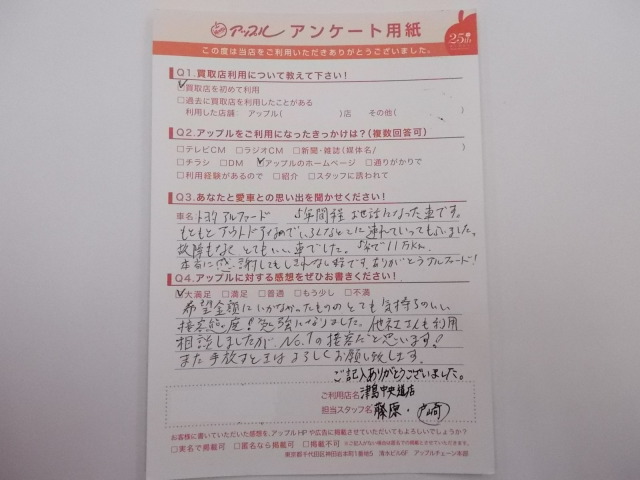 アップル アンケート用紙
この度は当店をご利用いただきありがとうございました。
25th
Q1.買取店利用について教えて下さい!
☑買取店を初めて利用
□過去に買取店を利用したことがある
利用した店舗: アップル( )店 その他( )
Q2.アップルをご利用になったきっかけは?(複数回答可)
□テレビCM □ラジオCM □新聞・雑誌(媒体名/ )
□チラシ □DM ☑アップルのホームページ □通りがかりで
□利用経験があるので □紹介 □スタッフに誘われて
Q3.あなたと愛車との思い出を聞かせてください!
車名 トヨタ アルファード 5年間程お世話になった車です。
もともとアウトドア
いろんなとこに連れていってもらいました。
故障もなく とてもいい車でした。5年で11万km。
本当に感謝してもしきれない程です。ありがとうアルファード!
Q4.アップルに対する感想をぜひお書きください!
☑大満足 □満足 □普通 □もう少し □不満
希望金額にいかなかったものの とても気持ちのいい
接客態度!勉強になりました。他社さんも利用
相談しましたが No.1の接客だと思います!
また手放すときはよろしくお願い致します。
ご記入ありがとうございました。
ご利用店名 津島中央道店
担当スタッフ名 藤原・
お客様に書いていただいた感想を、アップルHPや広告に掲載させていただいてもよろしいでしょうか?
□実名で掲載可 □匿名なら掲載可 □掲載不可 ※ご記入がない場合は匿名での掲載とさせていただきます。
東京都千代田区神田岩本町1番地5 清水ビル6F アップルチェーン本部